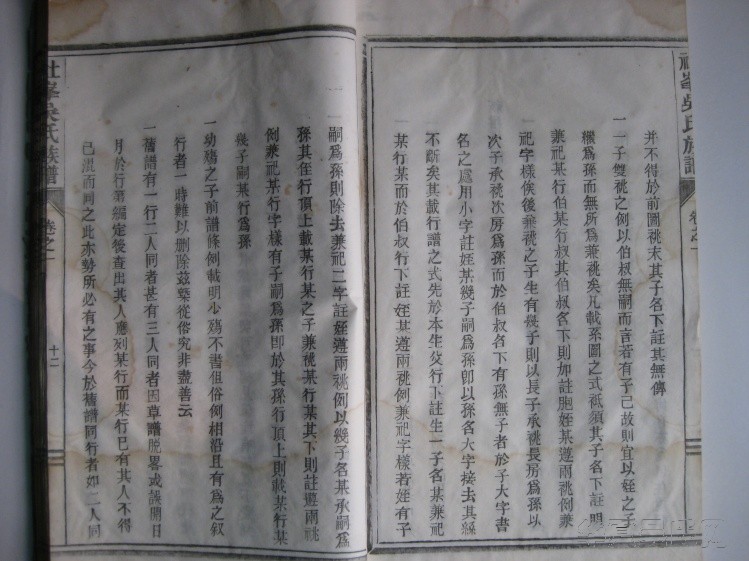 社峯吳氏族譜
卷之一
並不得於前圖祧末其子名下註其無傳
一一子雙祧之例以伯叔無嗣而言若有子已故則宜以姪之子
繼爲孫而無所爲兼祧矣凡載系圖之式祗須其子名下註明
兼祀某行伯某行叔其伯叔名下則如註胞姪某遵兩祧例兼
祀字樣俟後兼祧之子生有幾子則以長子承祧長房爲孫以
次子承祧次房爲孫而於伯叔名下有孫無子者於子大字書
名之處用小字註姪某幾子嗣爲孫卽以孫名大字接去其緜
不斷矣其載行譜之式先於本生父行下註生一子名某兼祀
某行某而於伯叔行下註姪某遵兩祧例兼祀字樣若姪有子
嗣爲孫則除去兼祀二字註姪遵兩祧例以幾子名某承嗣爲
孫其侄行頂上載某行某之子兼祧某行某其下則註遵兩祧
例兼祀某行字樣有子嗣爲孫卽於其孫行頂上則載某行某
幾子嗣某行爲孫
一幼殤之子前譜條例載明少殤不書但俗例相沿且有爲之叙
行者一時難以刪除茲塋從俗究非盡善云
一舊譜有一行二人同者甚有三人同者因草譜脫畧或誤開日
月於行第編定後查出其人應列某行而某行已有其人不得
已混而同之此亦勢所必有之事今於舊譜同行者如二人同
社峯吳氏族譜
卷之一
十二